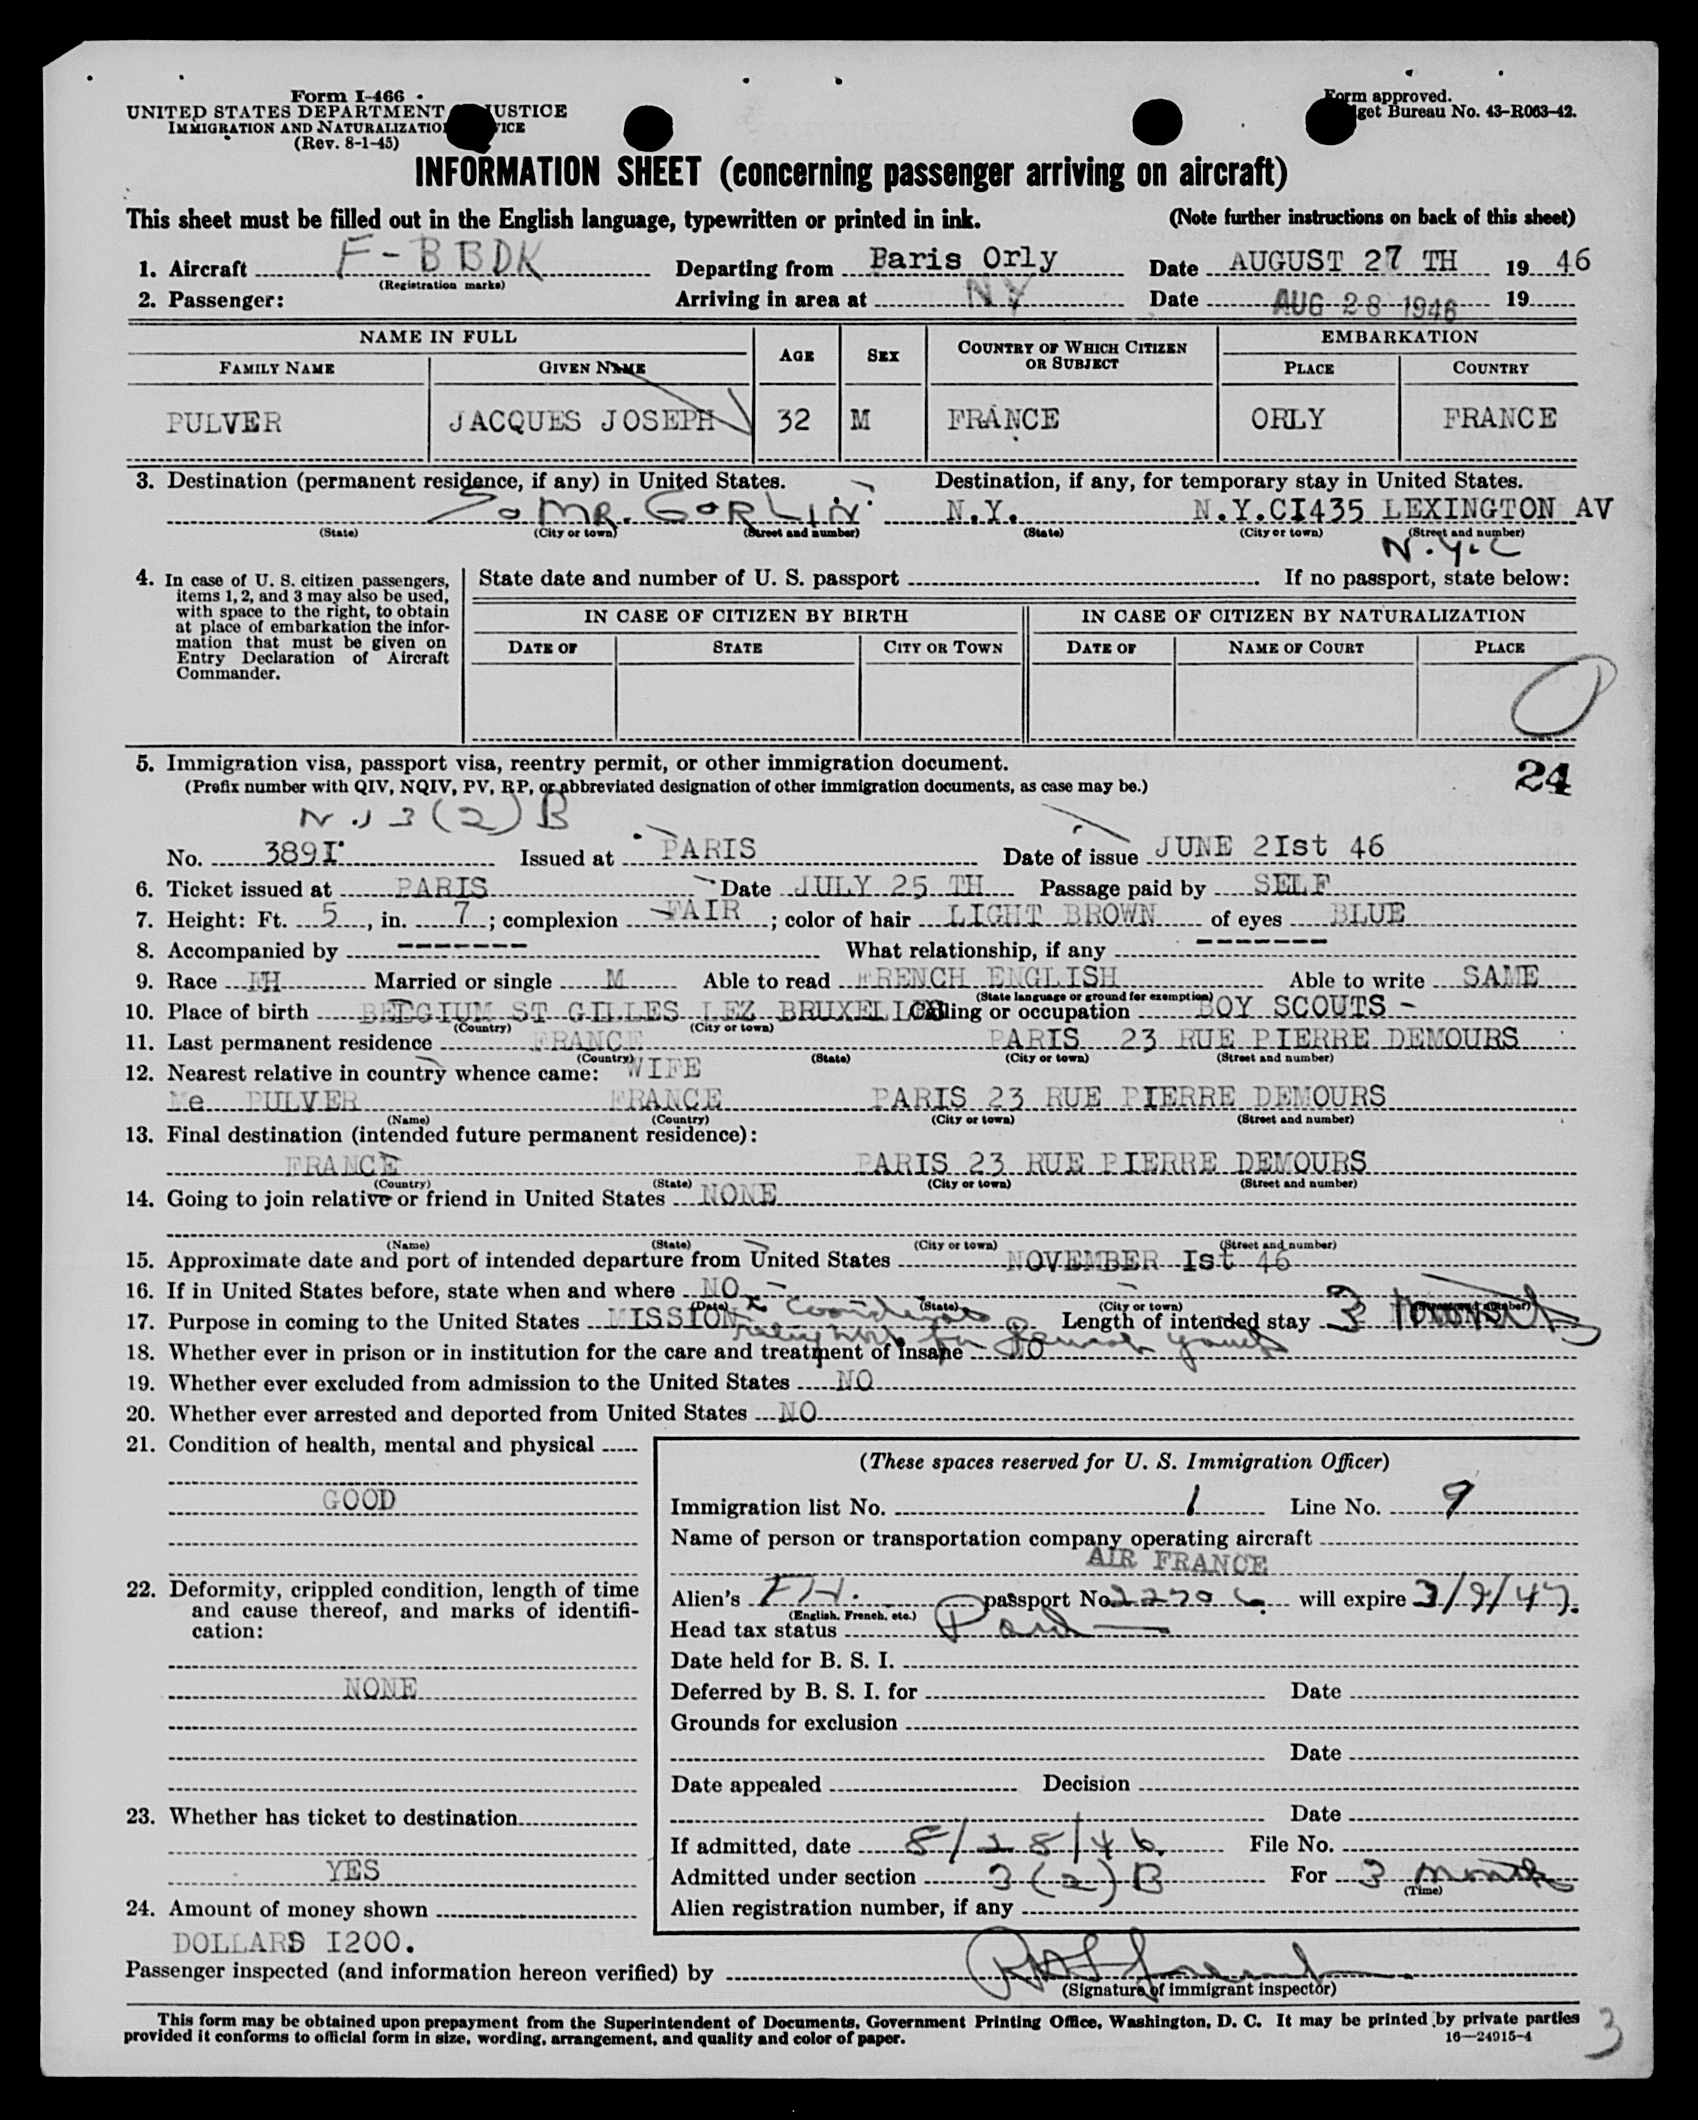 Form I-466
UNITED STATES DEPARTMENT JUSTICE
IMMIGRATION AND NATURALIZATIO ICE
(Rev. 8-1-45)
Form approved.
get Bureau No. 43-R063-42.
INFORMATION SHEET (concerning passenger arriving on aircraft)
This sheet must be filled out in the English language, typewritten or printed in ink. (Note further instructions on back of this sheet)
1. Aircraft F-BBDK Departing from Paris Orly Date AUGUST 27 TH 19 46
(Registration marks)
2. Passenger: Arriving in area at NY Date AUG 28 1946 19
NAME IN FULL AGE SEX COUNTRY OF WHICH CITIZEN OR SUBJECT EMBARKATION
FAMILY NAME GIVEN NAME PLACE COUNTRY
PULVER JACQUES JOSEPH 32 M FRANCE ORLY FRANCE
3. Destination (permanent residence, if any) in United States. Destination, if any, for temporary stay in United States.
MR. GORLIN N.Y. N.Y.CI435 LEXINGTON AV
(State) (City or town) (Street and number) (State) (City or town) (Street and number)
N.Y.C
4. In case of U. S. citizen passengers, items 1, 2, and 3 may also be used, with space to the right, to obtain at place of embarkation the information that must be given on Entry Declaration of Aircraft Commander.
State date and number of U. S. passport If no passport, state below:
IN CASE OF CITIZEN BY BIRTH IN CASE OF CITIZEN BY NATURALIZATION
DATE OF STATE CITY OR TOWN DATE OF NAME OF COURT PLACE
5. Immigration visa, passport visa, reentry permit, or other immigration document. 24
(Prefix number with QIV, NQIV, PV, RP, or abbreviated designation of other immigration documents, as case may be.)
3(2)B
No. 389I Issued at PARIS Date of issue JUNE 2Ist 46
6. Ticket issued at PARIS Date JULY 25 TH Passage paid by SELF
7. Height: Ft. 5, in. 7; complexion FAIR; color of hair LIGHT BROWN of eyes BLUE
8. Accompanied by -------- What relationship, if any --------
9. Race FH Married or single M Able to read FRENCH ENGLISH Able to write SAME
(State language or ground for exemption)
10. Place of birth BELGIUM ST GILLES LEZ BRUXELLES Calling or occupation BOY SCOUTS -
(Country) (City or town)
11. Last permanent residence FRANCE PARIS 23 RUE PIERRE DEMOURS
(Country) (State) (City or town) (Street and number)
12. Nearest relative in country whence came: WIFE
Me PULVER FRANCE PARIS 23 RUE PIERRE DEMOURS
(Name) (Country) (City or town) (Street and number)
13. Final destination (intended future permanent residence):
FRANCE PARIS 23 RUE PIERRE DEMOURS
(Country) (State) (City or town) (Street and number)
14. Going to join relative or friend in United States NONE
(Name) (State) (City or town) (Street and number)
15. Approximate date and port of intended departure from United States NOVEMBER Ist 46
16. If in United States before, state when and where NO
(Date) (State) (City or town) (Street and number)
17. Purpose in coming to the United States MISSION to coordinate Length of intended stay 3 months
18. Whether ever in prison or in institution for the care and treatment of insane NO
19. Whether ever excluded from admission to the United States NO
20. Whether ever arrested and deported from United States NO
21. Condition of health, mental and physical
GOOD
22. Deformity, crippled condition, length of time and cause thereof, and marks of identification:
NONE
23. Whether has ticket to destination
YES
24. Amount of money shown
DOLLARS I200.
(These spaces reserved for U. S. Immigration Officer)
Immigration list No. 1 Line No. 9
Name of person or transportation company operating aircraft
AIR FRANCE
Alien's FH. passport No. 22706 will expire 3/9/47.
(English, French, etc.)
Head tax status Paid
Date held for B. S. I.
Deferred by B. S. I. for Date
Grounds for exclusion
Date
Date appealed Decision
Date
If admitted, date 8/28/46. File No.
Admitted under section 3(2)B For 3 months
(Time)
Alien registration number, if any
Passenger inspected (and information hereon verified) by
(Signature of immigrant inspector)
This form may be obtained upon prepayment from the Superintendent of Documents, Government Printing Office, Washington, D. C. It may be printed by private parties
provided it conforms to official form in size, wording, arrangement, and quality and color of paper. 16—24915-4
3